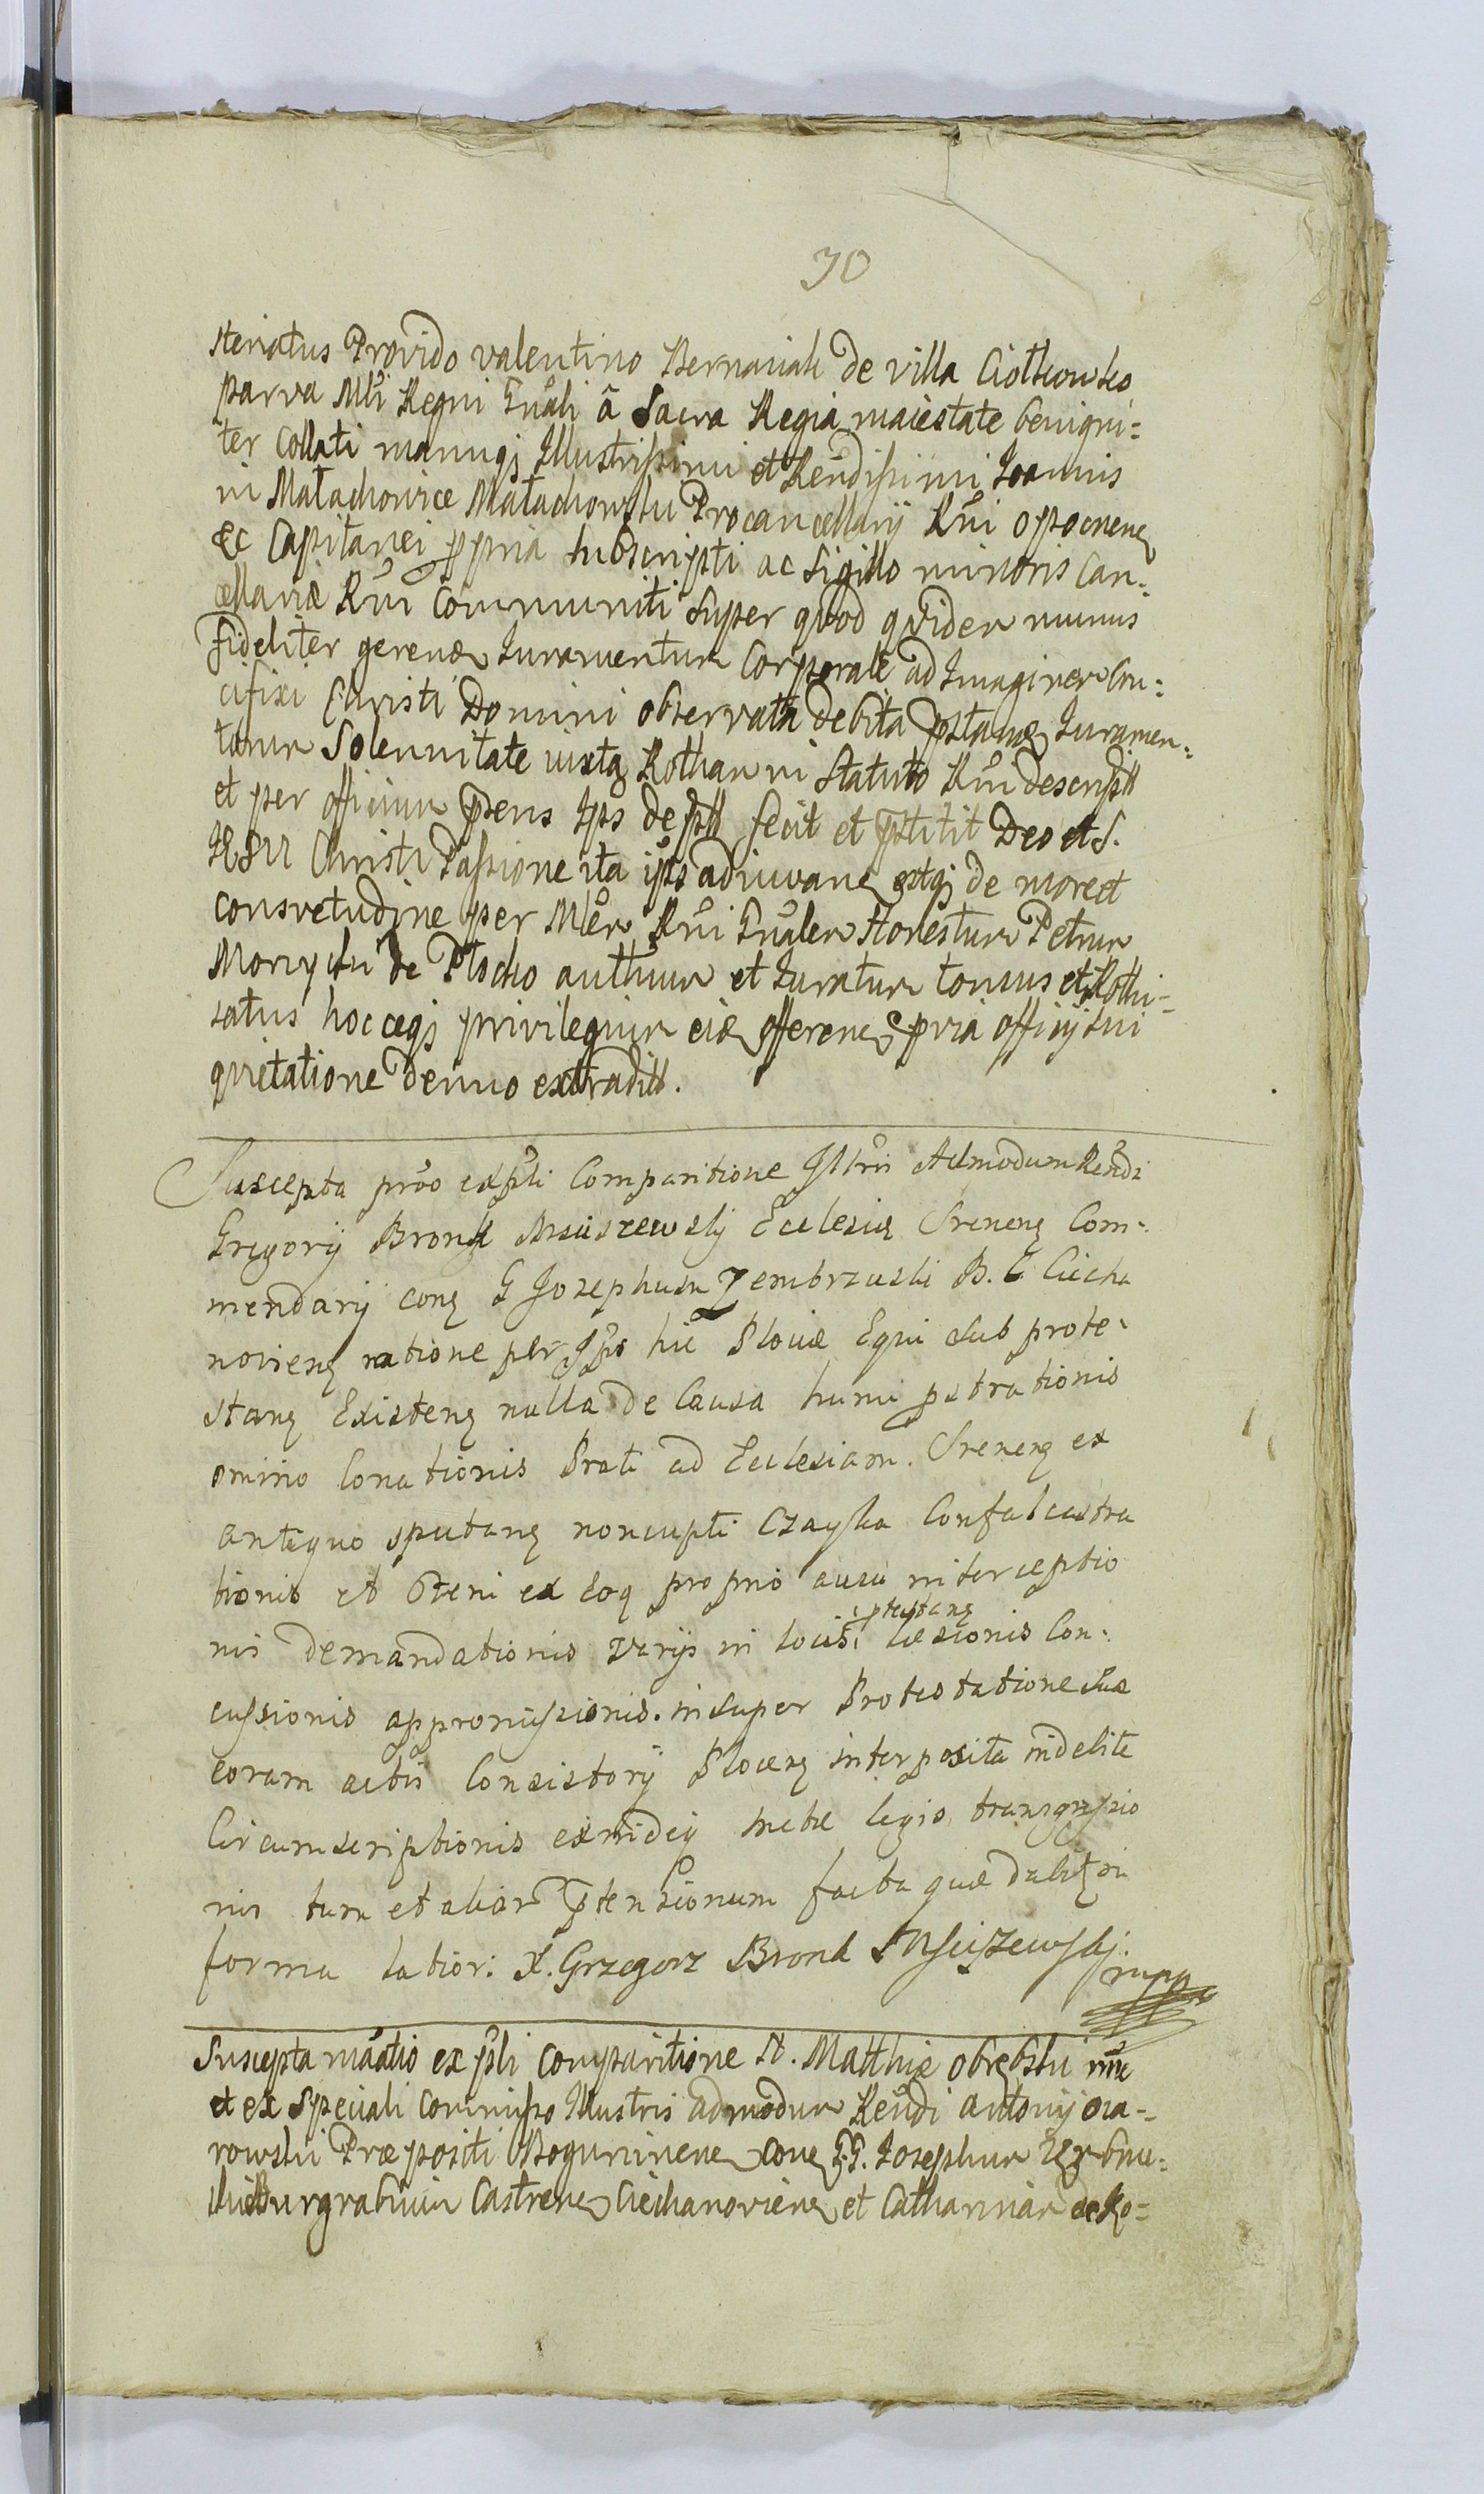 70
steriatus Provido valentino Bernaciak de villa Ciołkowko
parva Mli Regni Gnali â Sacra Regia maiestate benigni=
ter collati manuqz Illustrissimi et Rendissimi Joannis
in Małachowice Małachowski Procancellarij Rni opocnene
&c Capitanei ppria subscripti ac Sigillo minoris Can:
cellariæ Rni Communiti super quod quidem munus
fideliter gerend Juramentum Corporale ad Imaginem Cru:
cifixi Christi Domini observata debita pstand Juramen:
torum Solennitate iuxta Rotham in Statuto Rni descriptt
et per officium psens Ips deptt fecit et pstitit Deo et S.
IESU Christi Passione ita ips adiuvane extqz de more et
consvetudine per Mlem Rni Gnalem Honestum Petrum
Morzycki de Płocko authum et Juratum tonsus et Rothi=
satus hoccqz privilegium eid offerene pvia officij sui
quietatione denuo extraditt.
Suscepta prõo expli Comparitione Illris Admodum Rendi
Gregorij Bronk Msciszewskj Ecclesiæ Srenens Com:
mendarij cons G Josephum Zembrzuski B. C Ciecha
noviens ratione per Ips hic Plociæ Equi sub prote:
stans Existens nulla de Causa humi pstrationis
omino Conationis Prati ad Ecclesiam Srenens ex
antiquo sputans noncupti Czayka Confalcastra
tionis et fæni ex eoq proprio ausu interceptio
nis demandationis varijs in locis ptestans læsionis Con:
cussionis appromissionis. insuper Protestatione suæ
coram actis Consistorij Plocens interposita indebite
Circumscriptionis eximideq metæ legis transgressio
nis tum et aliar ptensionum facta quæ dabit in
forma latior: X. Grzegorz Bronk Msciszewskj.
mpp
Suscepta mãtio ex pli comparitione N. Matthiæ obrębski nne
et ex speciali commisso Illustris admodum Rendi antonij oża=
rowski Præpositi Bogurzinene cone G.G. Josephum Zembrzu:
ski Burgrabium Castrene Ciechanoviene et Catharinam de Ko=